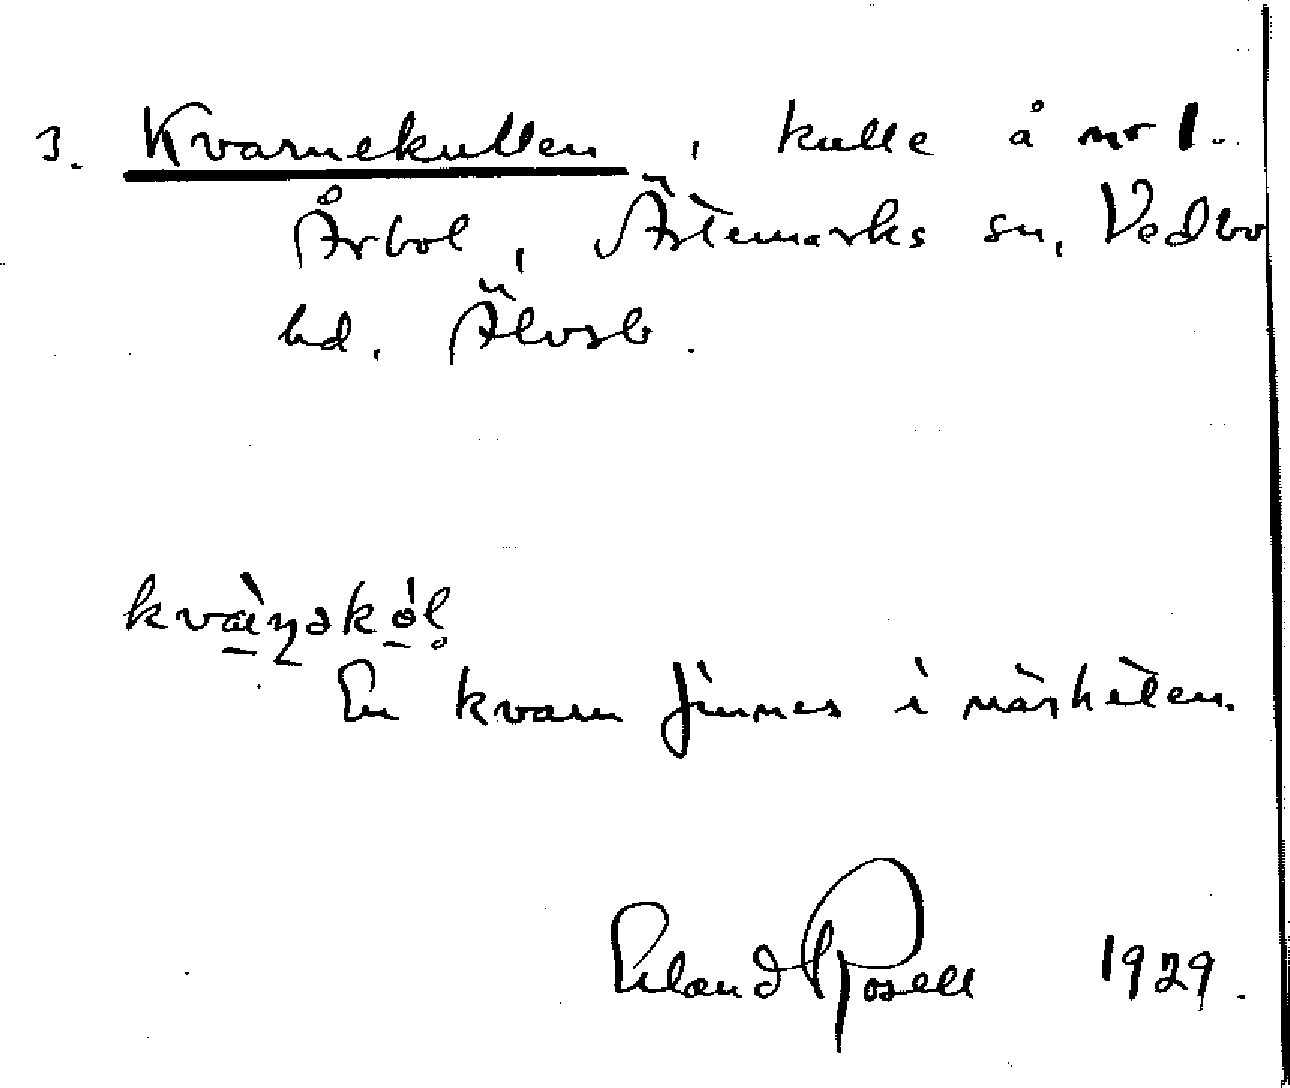 3. Kvarnekullen, kulle å nr 1.
Årbol, Ärtemarks sn, Vedbo
hd, Älvsb.
En kvarn finnes i närheten.
Erland Rosell 1929.